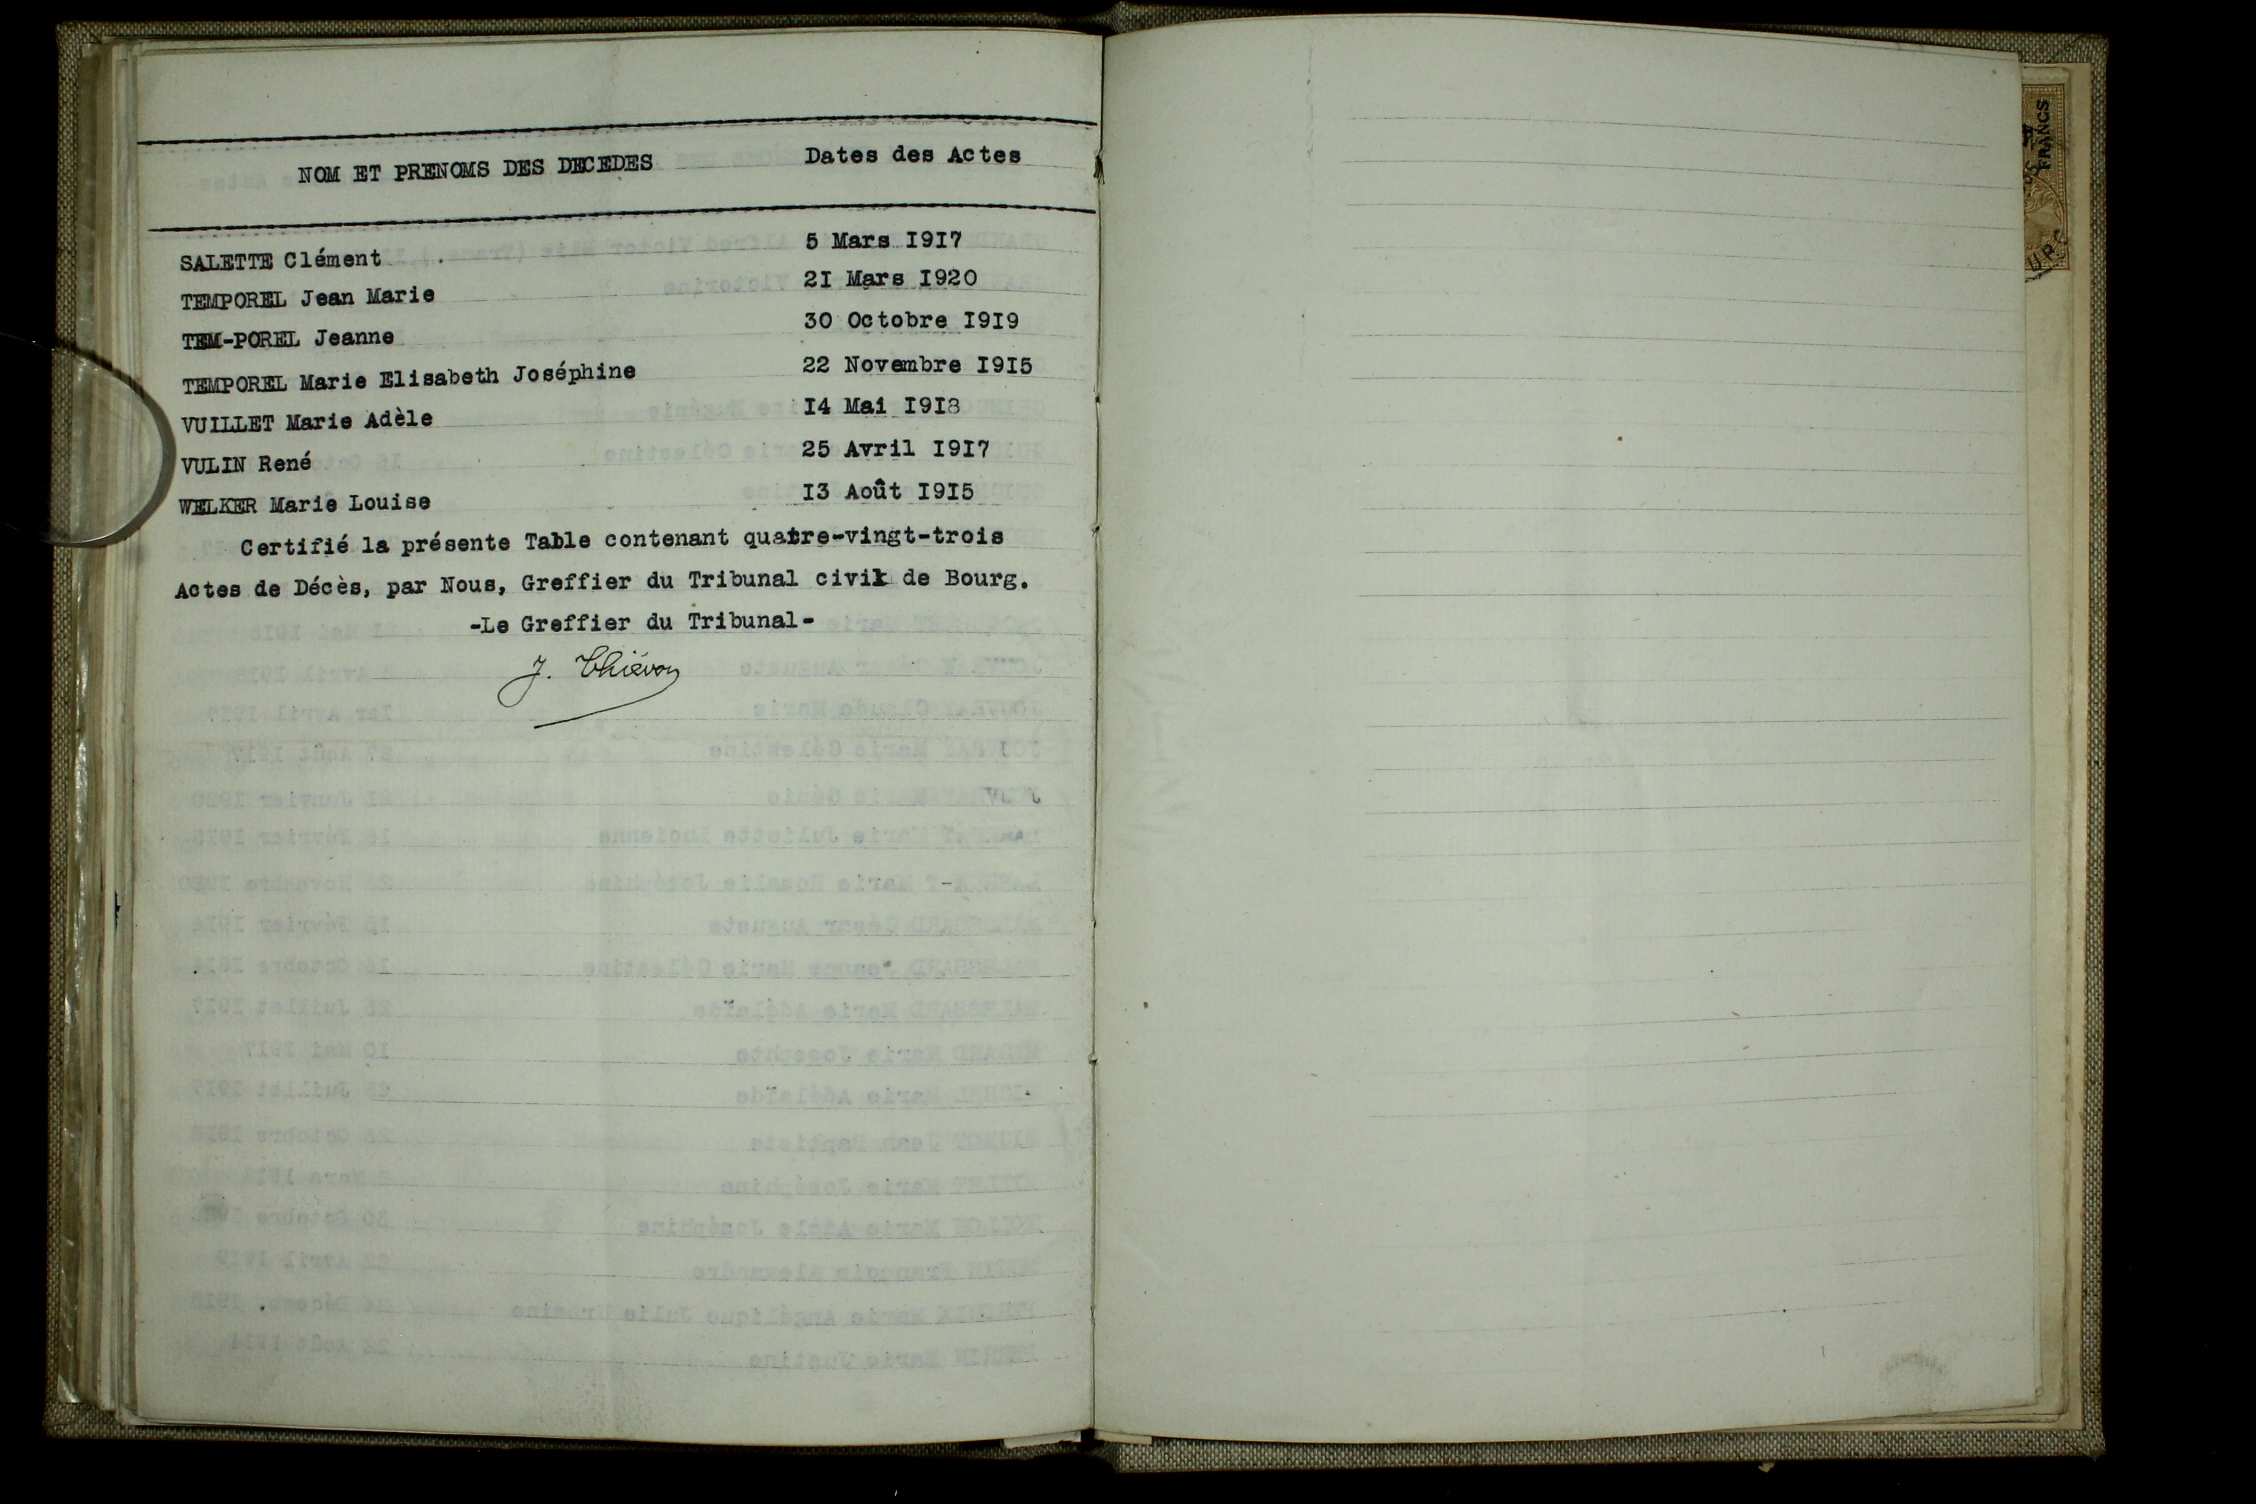 NOM ET PRENOMS DES DECEDES Dates des Actes
SALETTE Clément 5 Mars I9I7
TEMPOREL Jean Marie 2I Mars I920
TEM-POREL Jeanne 30 Octobre I9I9
TEMPOREL Marie Elisabeth Joséphine 22 Novembre I9I5
VUILLET Marie Adèle I4 Mai I9I8
VULIN René 25 Avril I9I7
WELKER Marie Louise I3 Août I9I5
Certifié la présente Table contenant quatre-vingt-trois
Actes de Décès, par Nous, Greffier du Tribunal civil de Bourg.
-Le Greffier du Tribunal-
J. Thiévon
FRANCS